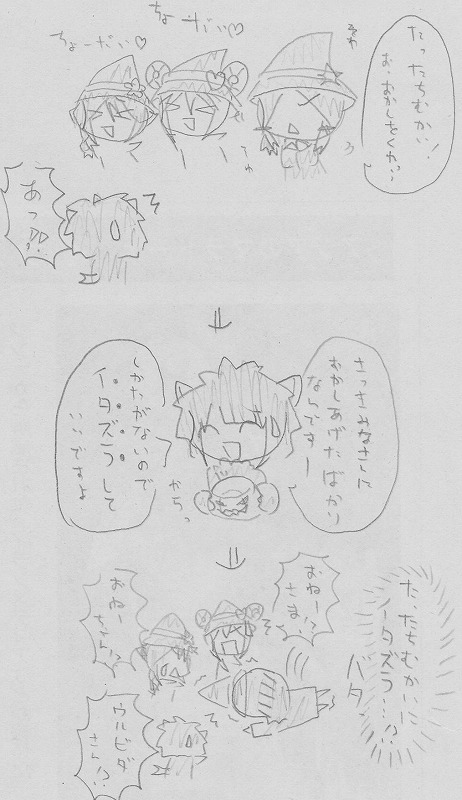 たったちむかい!
お、おかしをくれ…
ちょーだい♡
ちょーだい♡
あっ!?
さっきみなさんに
おかしあげたばかり
なんですー
しかたがないので
イタズラして
いいですよ
からっ
た、たちむかいに
イタズラ…!?
バタ
おねー!?
さま
おねー
ちゃん!?
ウルビダ
さん!?